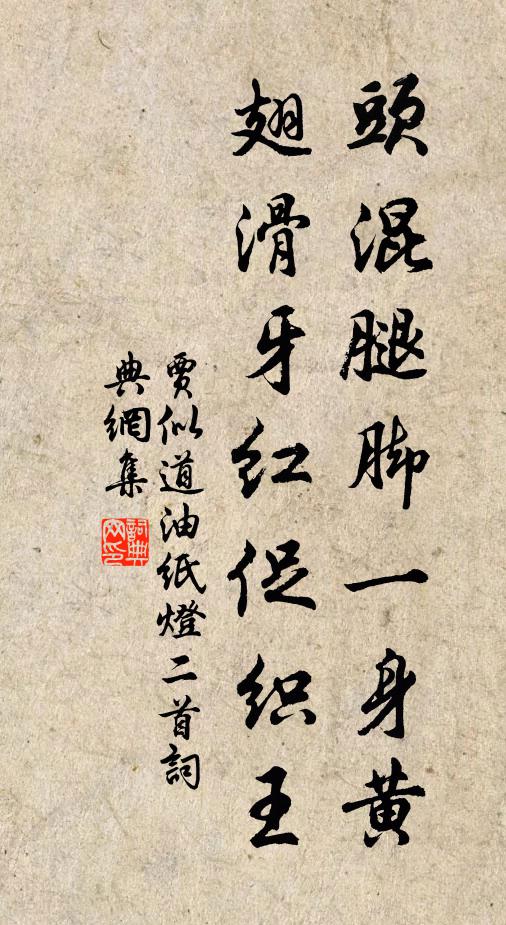 頭混腿脚一身黄
翅滑牙红促织王
賈似道油紙燈二首詞
典網集
詞典网印